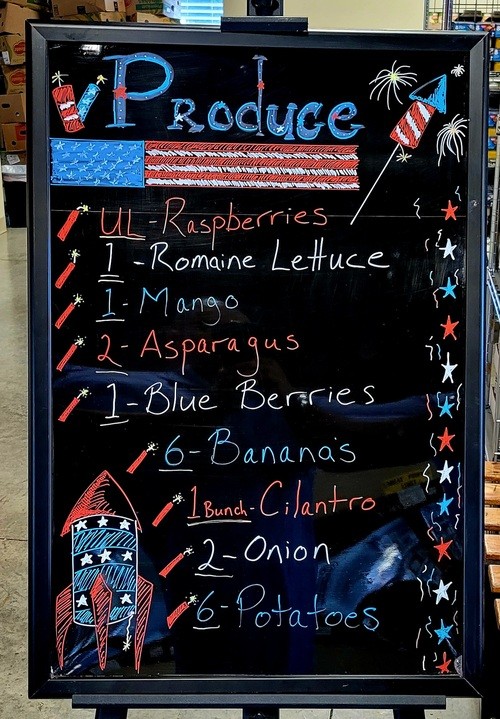 Produce
UL - Raspberries
1 - Romaine Lettuce
1 - Mango
2 - Asparagus
1 - Blue Berries
6 - Banana's
1 Bunch - Cilantro
2 - Onion
6 - Potatoes